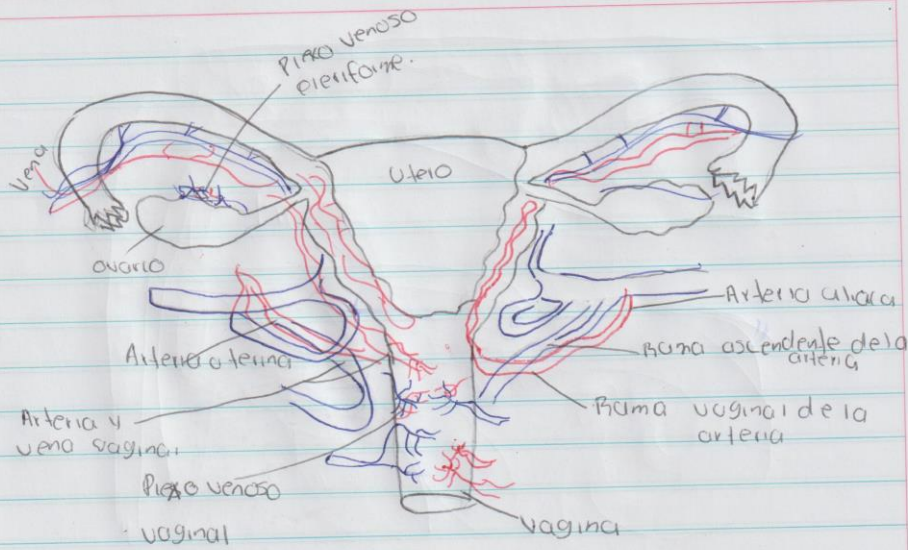 Plexo venoso
pieriforme.
Vena
Utero
ovario
Arteria iliaca
Arteria uterina
Rama ascendente de la
arteria
Arteria y
vena vaginal
Rama vaginal de la
arteria
Plexo venoso
vaginal
vagina